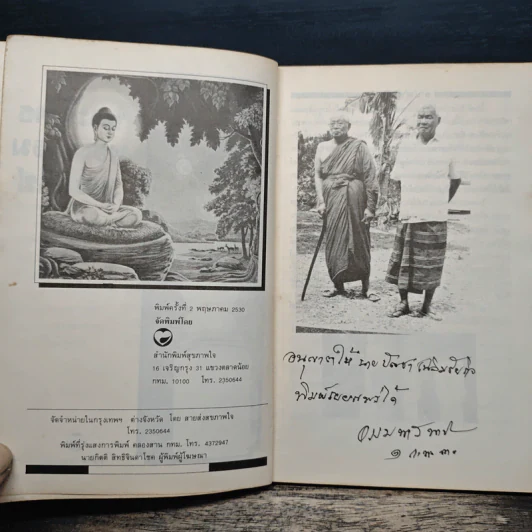 พิมพ์ครั้งที่ 2 พฤษภาคม 2530
จัดพิมพ์โดย
สำนักพิมพ์สุขภาพใจ
16 เจริญกรุง 31 แขวงตลาดน้อย
กทม. 10100 โทร. 2350644
จัดจำหน่ายในกรุงเทพฯ ต่างจังหวัด โดย สายส่งสุขภาพใจ
โทร. 2350644
พิมพ์ที่รุ่งแสงการพิมพ์ คลองสาน กทม. โทร. 4372947
นายกิตติ สิทธิจินดาโชค ผู้พิมพ์ผู้โฆษณา
อนุญาตให้ นาย บัญชา
พิมพ์เผยแพร่ได้